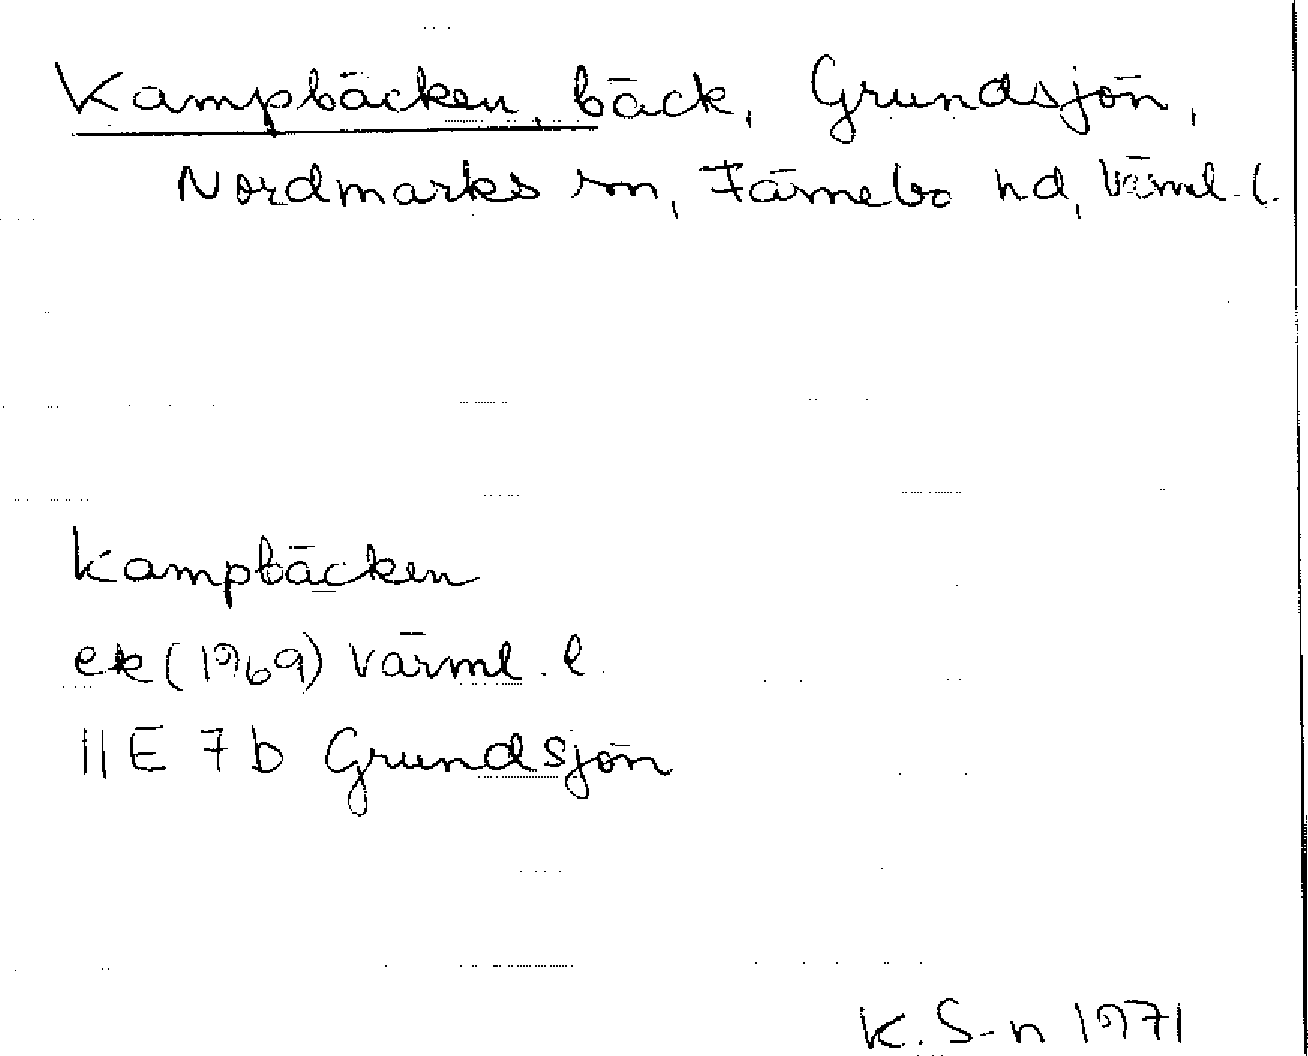 Kampbäcken, bäck, Grundsjön,
Nordmarks sn, Färnebo hd, Värml. l.
Kampbäcken
ek (1969) Värml. l.
11E 7b Grundsjön
K. S-n 1971